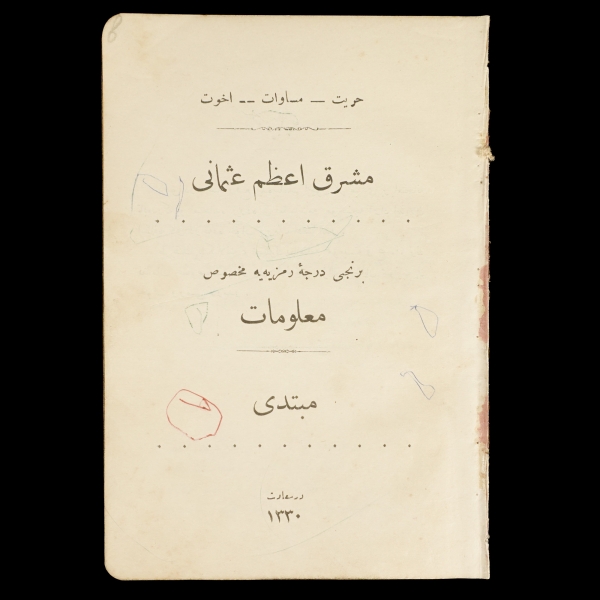 حریت — مساوات -- اخوت
مشرق اعظم عثمانی
برنجی درجهٔ رمزیه‌یه مخصوص
معلومات
مبتدی
درسعادت
١٣٣٠